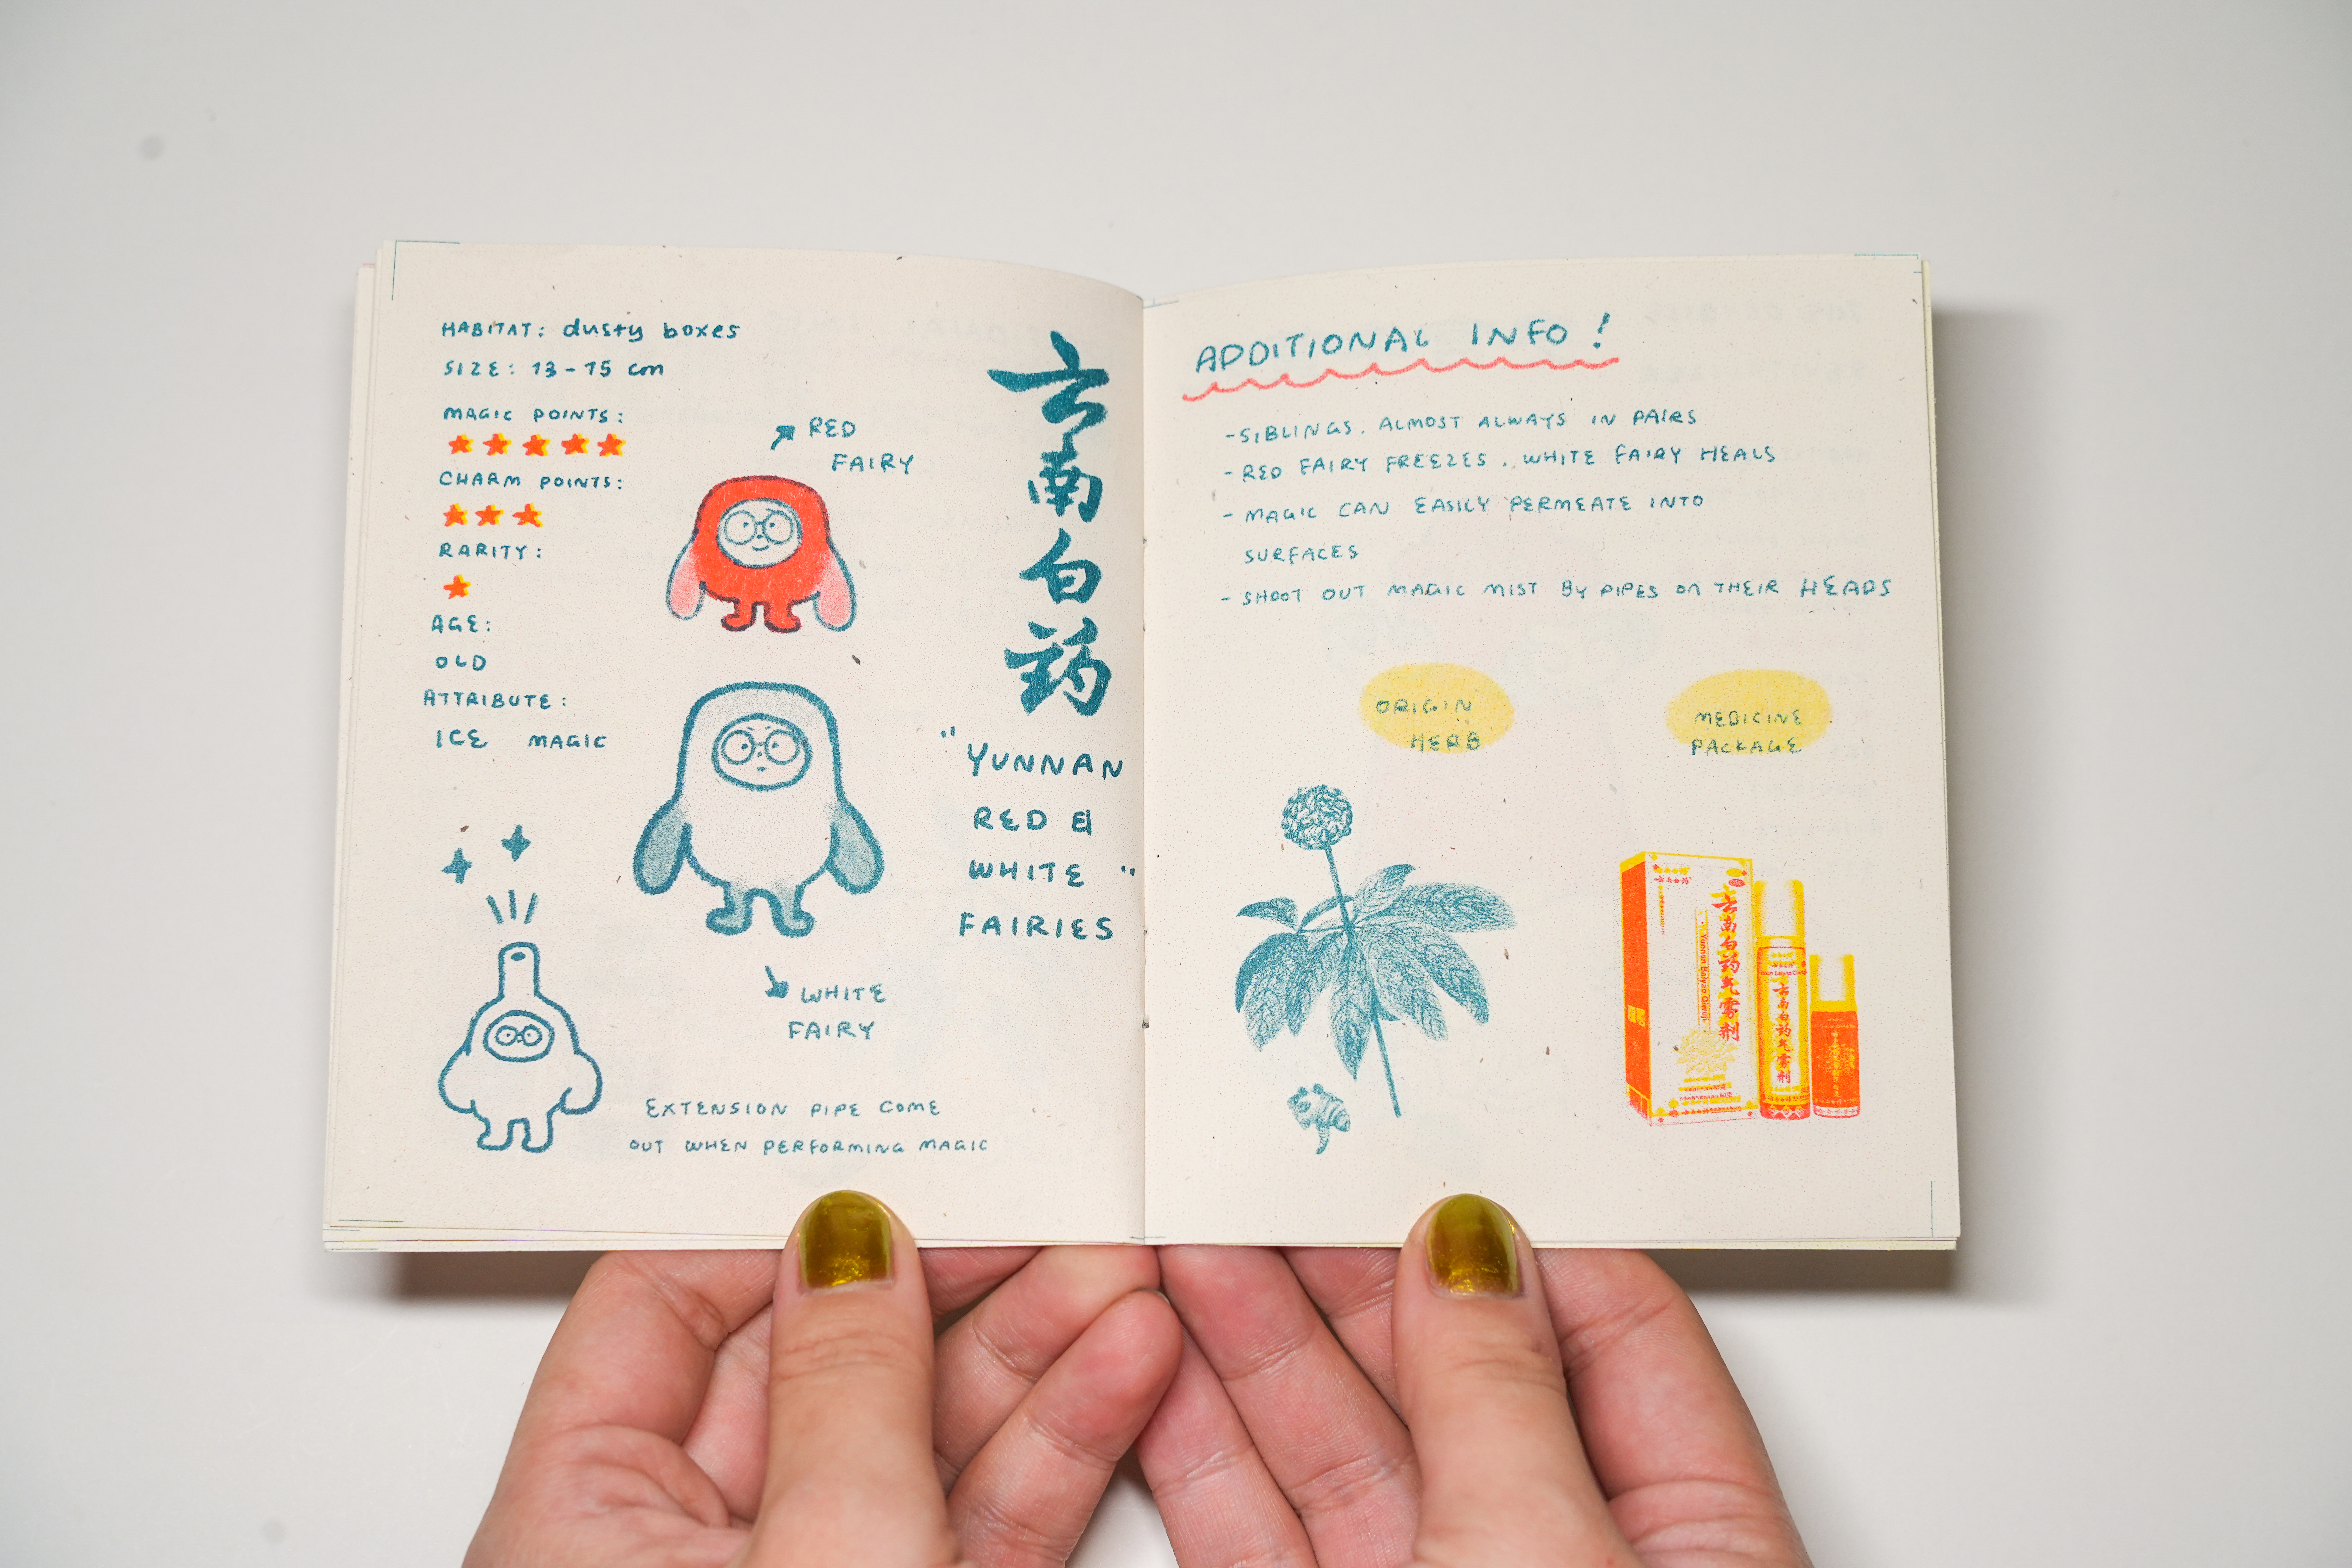 HABITAT: dusty boxes
SIZE: 13-15 cm
MAGIC POINTS:
CHARM POINTS:
RARITY:
AGE:
OLD
ATTRIBUTE:
ICE MAGIC
RED
FAIRY
WHITE
FAIRY
EXTENSION PIPE COME
OUT WHEN PERFORMING MAGIC
云南白药
"YUNNAN
RED &
WHITE "
FAIRIES
ADDITIONAL INFO!
-SIBLINGS. ALMOST ALWAYS IN PAIRS
-RED FAIRY FREEZES. WHITE FAIRY HEALS
- MAGIC CAN EASILY PERMEATE INTO
SURFACES
- SHOOT OUT MAGIC MIST BY PIPES ON THEIR HEADS
ORIGIN
HERB
MEDICINE
PACKAGE
云南白药气雾剂
Yunnan Baiyao
云南白药气雾剂